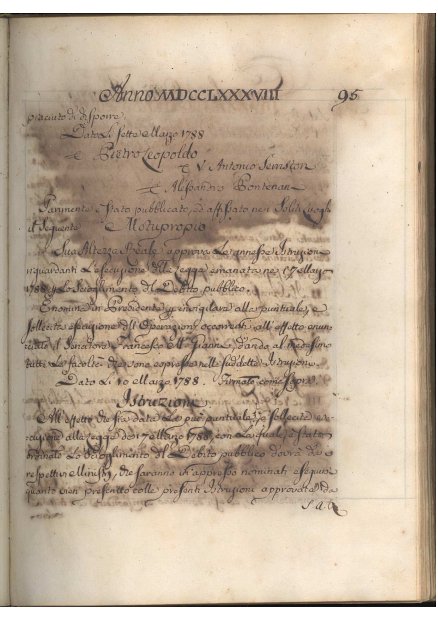 Anno MDCCLXXXVIII 95
piaciuto di disporre.
Dato li sette Marzo 1788
= Pietro Leopoldo
= V Antonio Serristori
= Alessandro Pontenani
Parimente è stato pubblicato, ed affissato nei soliti Luoghi
il seguente = Motuproprio
Sua Altezza Reale approva le annesse Istruzioni
riguardanti l'esecuzione della Legge emanata ne' 7 Marzo
1788 lo scioglimento del Debito pubblico.
E nomina in Presidente invigilare alla puntuale, e
sollecita esecuzione delle Operazioni occorrenti all'effetto enun
ciato il Senatore Francesco M.ª Gianni, dando al medesimo
tutte le facoltà che sono espresse nelle suddette Istruzioni.
Dato li 10 Marzo 1788. Firmato come sopra
Istruzione
All'effetto che sia data la più puntuale, e sollecita ese
cuzione alla legge de' 7 Marzo 1788, con la quale è stato
ordinato lo scioglimento del Debito pubblico dovrà da
respettivi Ministri, che saranno di appresso nominati eseguirsi
quanto vien prescritto colle presenti Istruzioni approvate da
S.A.R